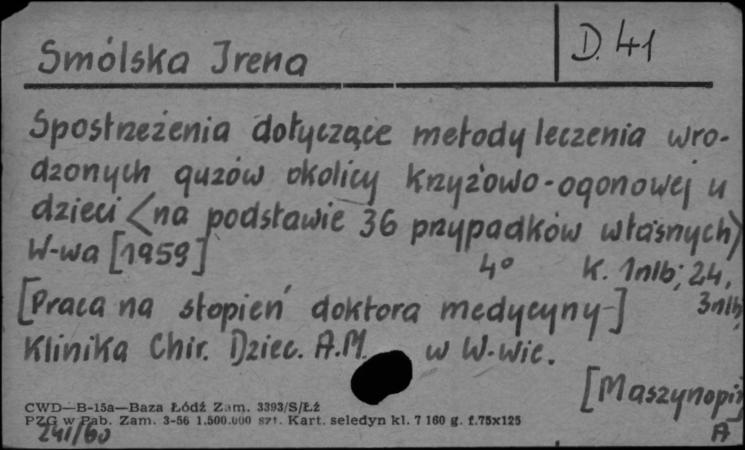 Smólska Irena
D. 41
Spostrzeżenia dotyczące metody leczenia wro-
dzonych guzów okolicy krzyżowo-ogonowej u
dzieci <na podstawie 36 przypadków własnych>
W-wa [1959] 4° K. 1nlb; 24,
3nlb,
[Praca na stopień doktora medycyny-]
Klinika Chir. Dziec. A.M. w W-wie.
[Maszynopis]
CWD—B-15a—Baza Łódź Zam. 3393/S/Łź
PZG w Pab. Zam. 3-56 1.500.000 szt. Kart. seledyn kl. 7 160 g. f.75x125
241/60
A